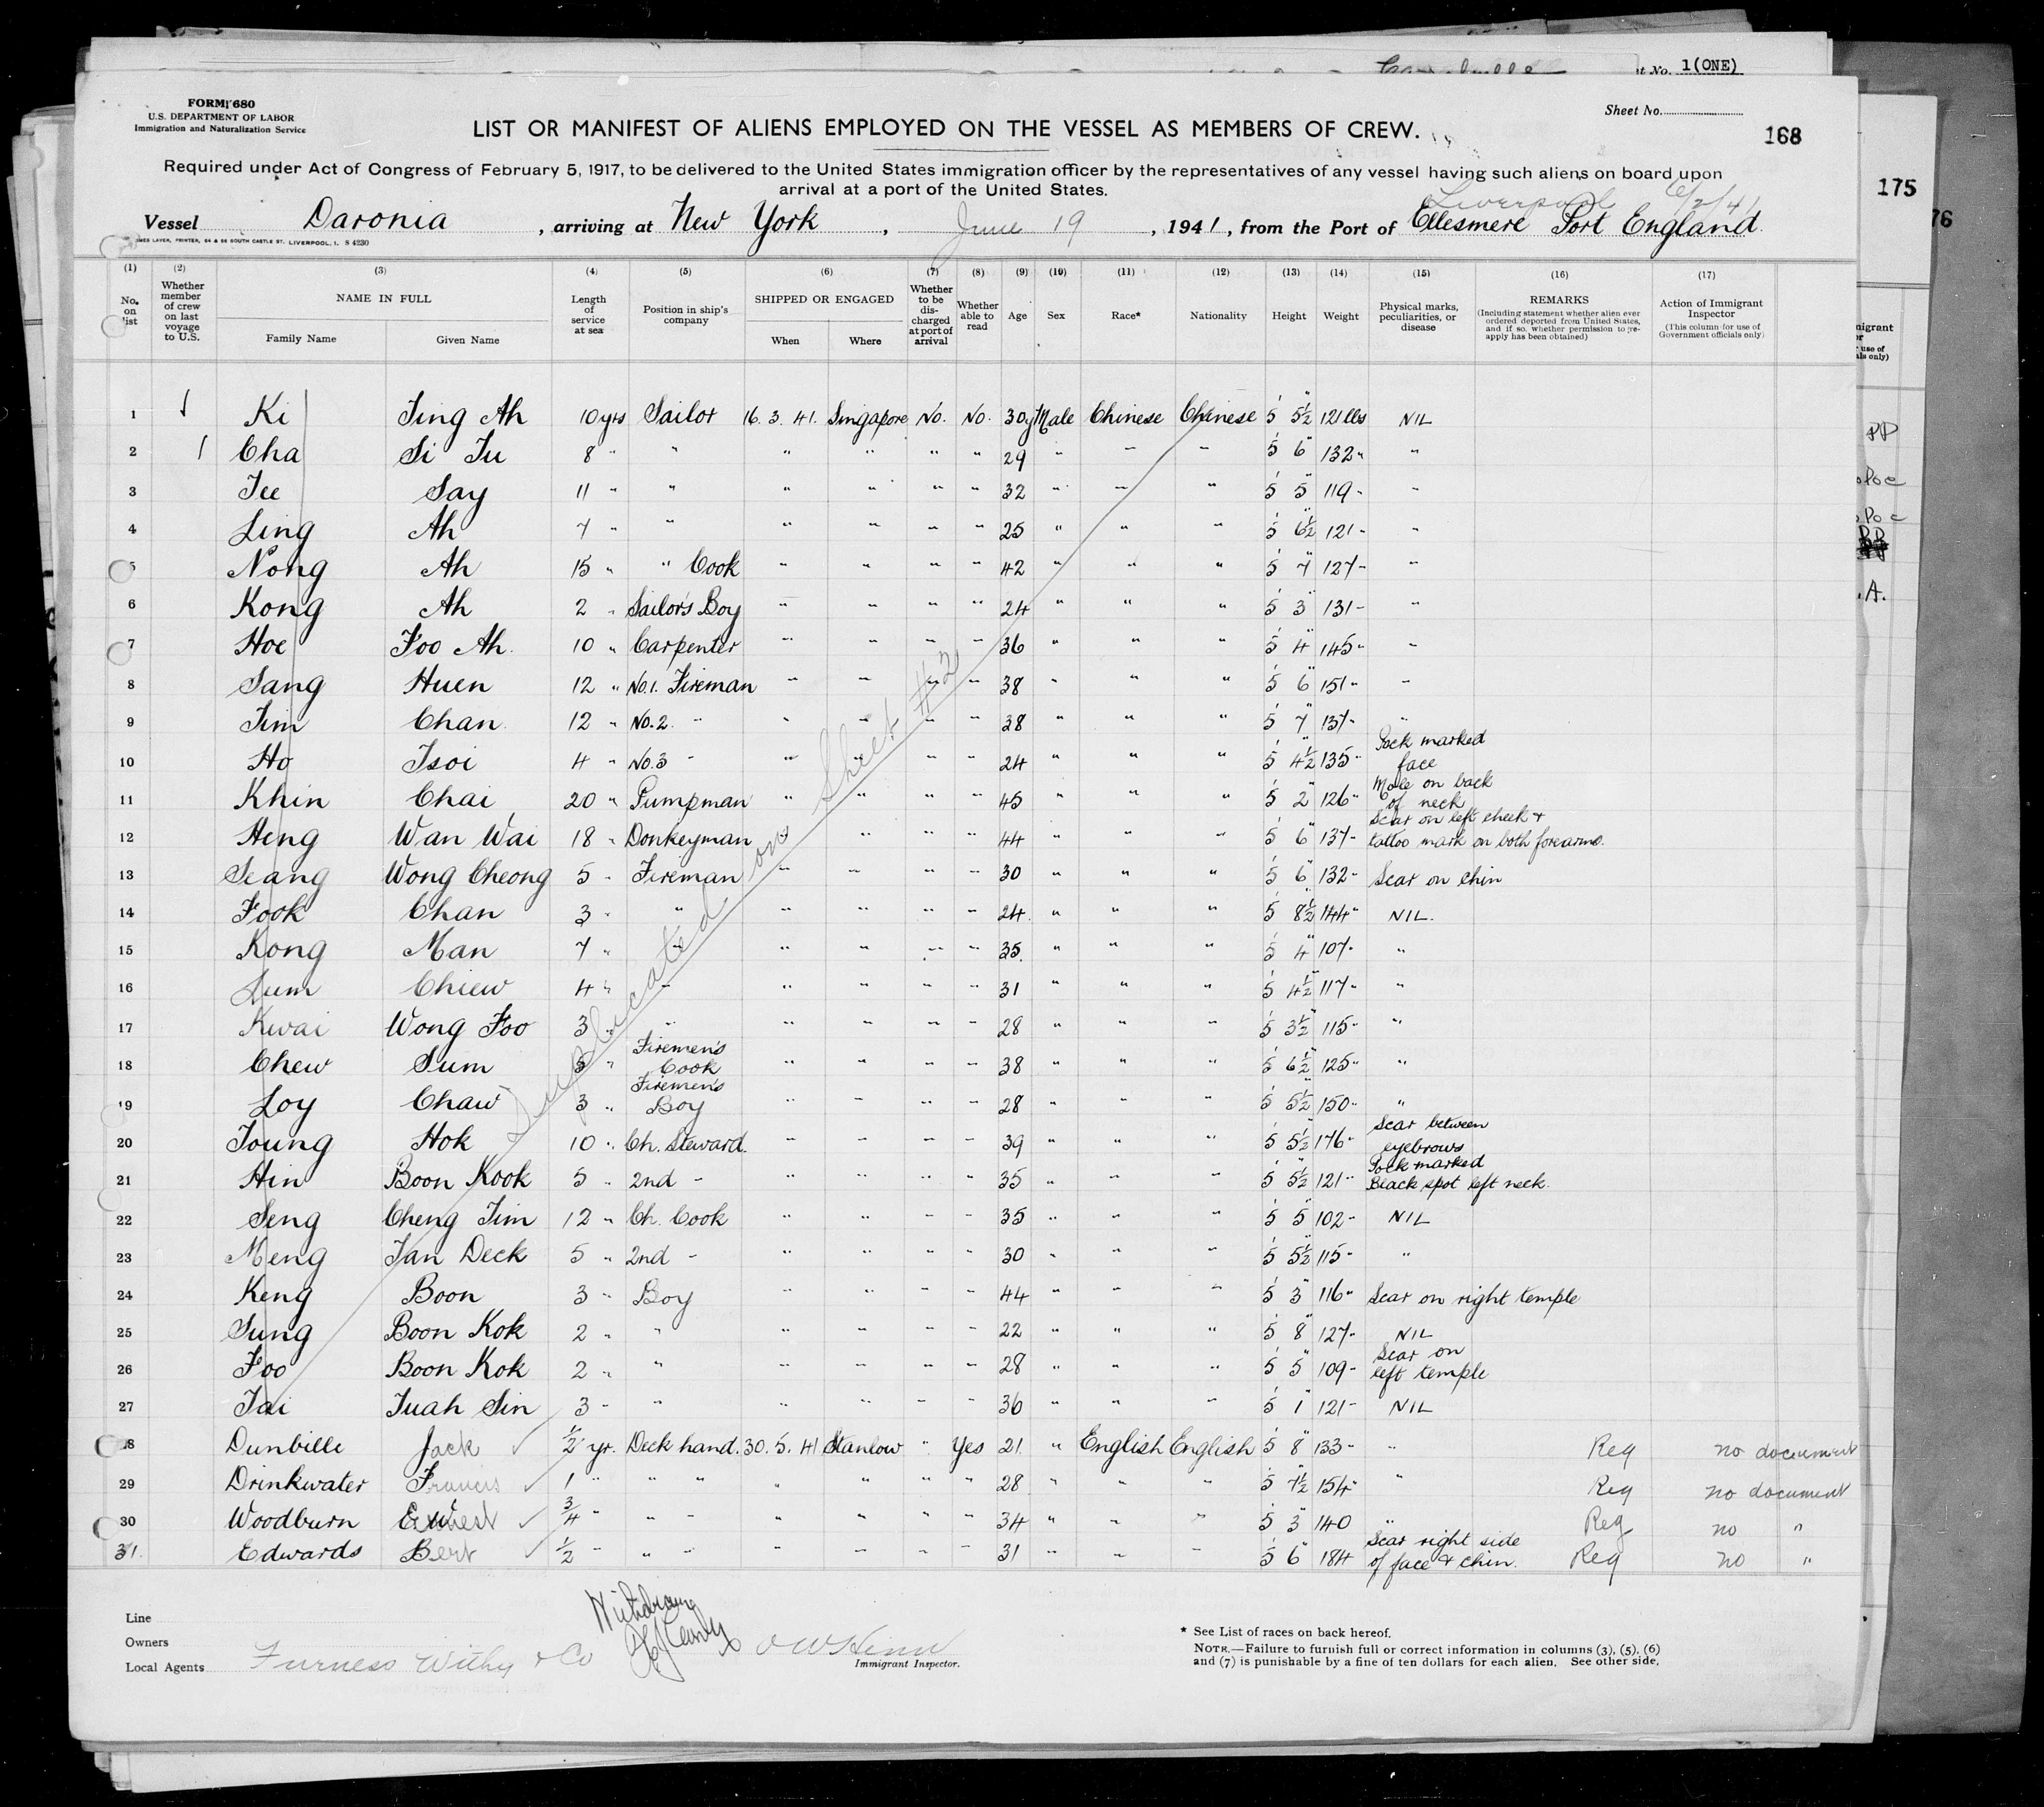 1(ONE)
FORM 680
U.S. DEPARTMENT OF LABOR
Immigration and Naturalization Service
Sheet No.
LIST OR MANIFEST OF ALIENS EMPLOYED ON THE VESSEL AS MEMBERS OF CREW.
168
175
76
Required under Act of Congress of February 5, 1917, to be delivered to the United States immigration officer by the representatives of any vessel having such aliens on board upon
arrival at a port of the United States.
Liverpool 6/2/41
Vessel Daronia, arriving at New York, June 19, 1941, from the Port of Ellesmere Port England.
(1) (2) (3) (4) (5) (6) (7) (8) (9) (10) (11) (12) (13) (14) (15) (16) (17)
No. on list
Whether member of crew on last voyage to U.S.
NAME IN FULL
Family Name Given Name
Length of service at sea
Position in ship's company
SHIPPED OR ENGAGED
When Where
Whether to be discharged at port of arrival
Whether able to read
Age Sex Race* Nationality Height Weight
Physical marks, peculiarities, or disease
REMARKS
(Including statement whether alien ever ordered deported from United States, and if so, whether permission to re-apply has been obtained)
Action of Immigrant Inspector
(This column for use of Government officials only)
1 Ki Ting Ah 10 yrs Sailor 16. 3. 41. Singapore No. No. 30 y Male Chinese Chinese 5' 5½" 121 lbs NIL
2 Cha Si Tu 8 " " " " " " 29 " " " 5' 6" 132 " "
3 Tee Say 11 " " " " " " 32 " " " 5 5 119 " "
4 Ling Ah 7 " " " " " " 25 " " " 5 6½ 121 " "
5 Nong Ah 15 " " Cook " " " " 42 " " " 5 7 127 " "
6 Kong Ah 2 " Sailor's Boy " " " " 24 " " " 5 3 131 " "
7 Hoe Foo Ah. 10 " Carpenter " " " " 36 " " " 5 4 145 " "
8 Sang Huen 12 " No. 1. Fireman " " " " 38 " " " 5 6 151 " "
9 Tim Chan. 12 " No. 2 " " " " " 38 " " " 5 7 137 " "
10 Ho Tsoi 4 " No. 3 " " " " " 24 " " " 5 4½ 135 " Pock marked face
11 Khin Chai 20 " Pumpman " " " " 45 " " " 5 2 126 " Mole on back of neck
12 Heng Wan Wai 18 " Donkeyman " " " " 44 " " " 5 6 137 " Scar on left cheek + tattoo mark on both forearms.
13 Seang Wong Cheong 5 " Fireman " " " " 30 " " " 5 6 132 " Scar on chin
14 Fook Chan 3 " " " " " " 24 " " " 5 8½ 144 " NIL.
15 Kong Man 7 " " " " " " 35. " " " 5 4 107 " "
16 Lum Chiew 4 " " " " " " 31 " " " 5 4½ 117 " "
17 Kwai Wong Foo 3 " " " " " " 28 " " " 5 3½ 115 " "
18 Chew Sum 5 " Firemen's Cook " " " " 38 " " " 5 6½ 125 " "
19 Loy Chaw 3 " Firemen's Boy " " " " 28 " " " 5 5½ 150 " "
20 Toung Hok 10 " Ch. Steward. " " " " 39 " " " 5 5½ 176 " Scar between eyebrows
21 Hin Boon Kook 5 " 2nd " " " " " 35 " " " 5 5½ 121 " Pock marked Black spot left neck.
22 Seng Cheng Tim 12 " Ch. Cook " " " " 35 " " " 5 5 102 " NIL
23 Meng Tan Deck 5 " 2nd " " " " " 30 " " " 5 5½ 115 " "
24 Keng Boon 3 " Boy " " " " 44 " " " 5 3 116 " Scar on right temple
25 Sung Boon Kok 2 " " " " " " 22 " " " 5 8 127 " NIL
26 Foo Boon Kok 2 " " " " " " 28 " " " 5 5 109 " Scar on left temple
27 Tai Tuah Sin 3 " " " " " " 36 " " " 5 1 121 " NIL
28 Dunbille Jack ½ yr. Deck hand. 30. 5. 41 Stanlow " Yes 21 " English English 5 8 133 " " Reg no document
29 Drinkwater Francis 1 " " " " " " " 28 " " " 5 7½ 154 " " Reg no document
30 Woodburn Ernest ¾ " " " " " " " 34 " " " 5 3 140 " Reg no "
31. Edwards Bert ½ " " " " " " " 31 " " " 5 6 184 Scar right side of face & chin. Reg no "
Duplicated on Sheet #2
Line
Owners
Local Agents Furness Withy & Co
Immigrant Inspector.
* See List of races on back hereof.
NOTE.—Failure to furnish full or correct information in columns (3), (5), (6)
and (7) is punishable by a fine of ten dollars for each alien. See other side.